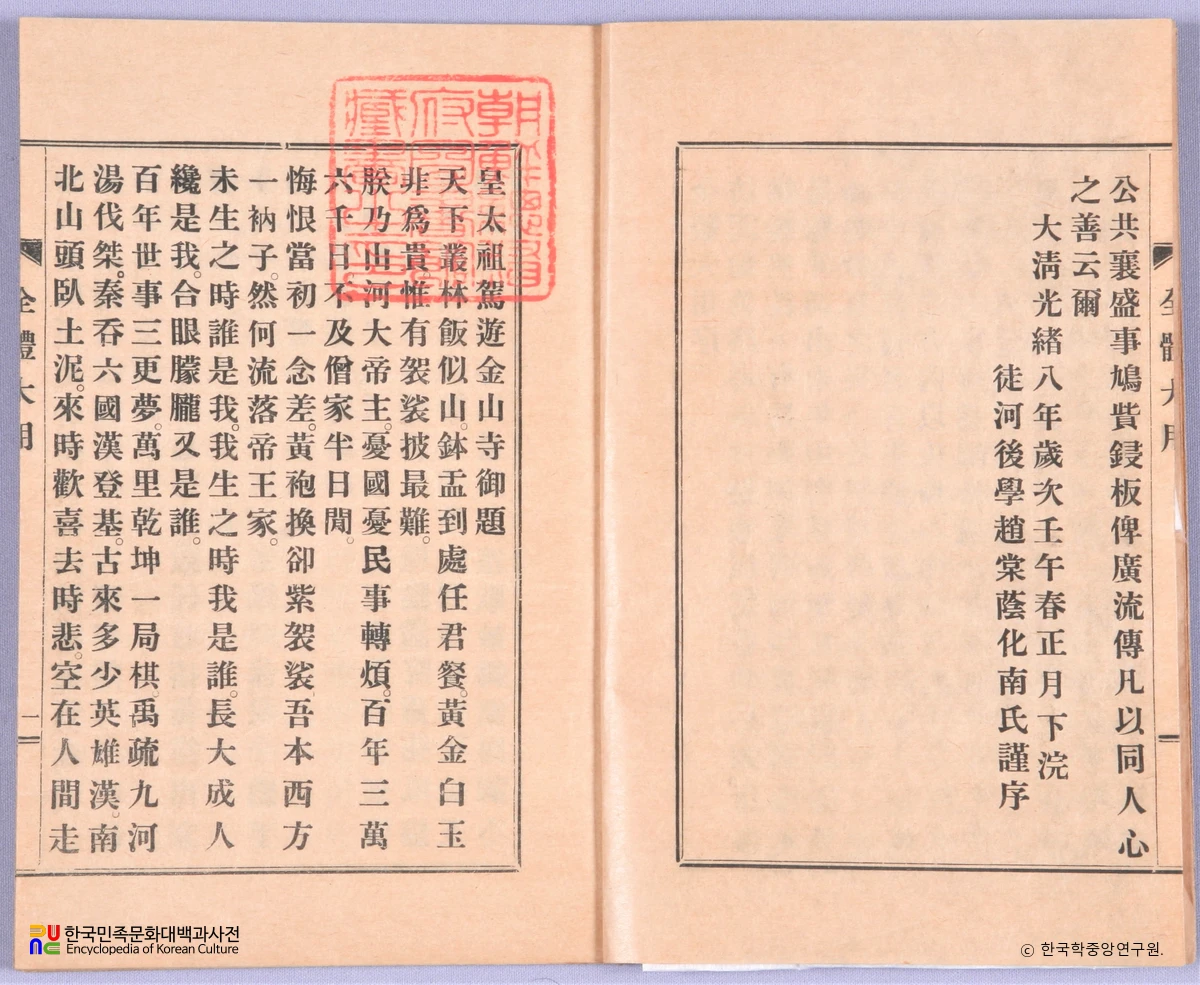 全體大用
公共襄盛事鳩貲鋟板俾廣流傳凡以同人心
之善云爾
大淸光緖八年歲次壬午春正月下浣
徒河後學趙棠蔭化南氏謹序
朝鮮總督
府圖書館
藏書之印
皇太祖駕遊金山寺御題
天下叢林飯似山。鉢盂到處任君餐。黃金白玉
非爲貴。惟有袈裟披最難。
朕乃山河大帝主。憂國憂民事轉煩。百年三萬
六千日。不及僧家半日閒。
悔恨當初一念差。黃袍換卻紫袈裟。吾本西方
一衲子。然何流落帝王家。
未生之時誰是我。我生之時我是誰。長大成人
纔是我。合眼朦朧又是誰。
百年世事三更夢。萬里乾坤一局棋。禹疏九河
湯伐桀。秦呑六國漢登基。古來多少英雄漢。南
北山頭臥土泥。來時歡喜去時悲。空在人間走
全體大用
한국민족문화대백과사전
Encyclopedia of Korean Culture
© 한국학중앙연구원.